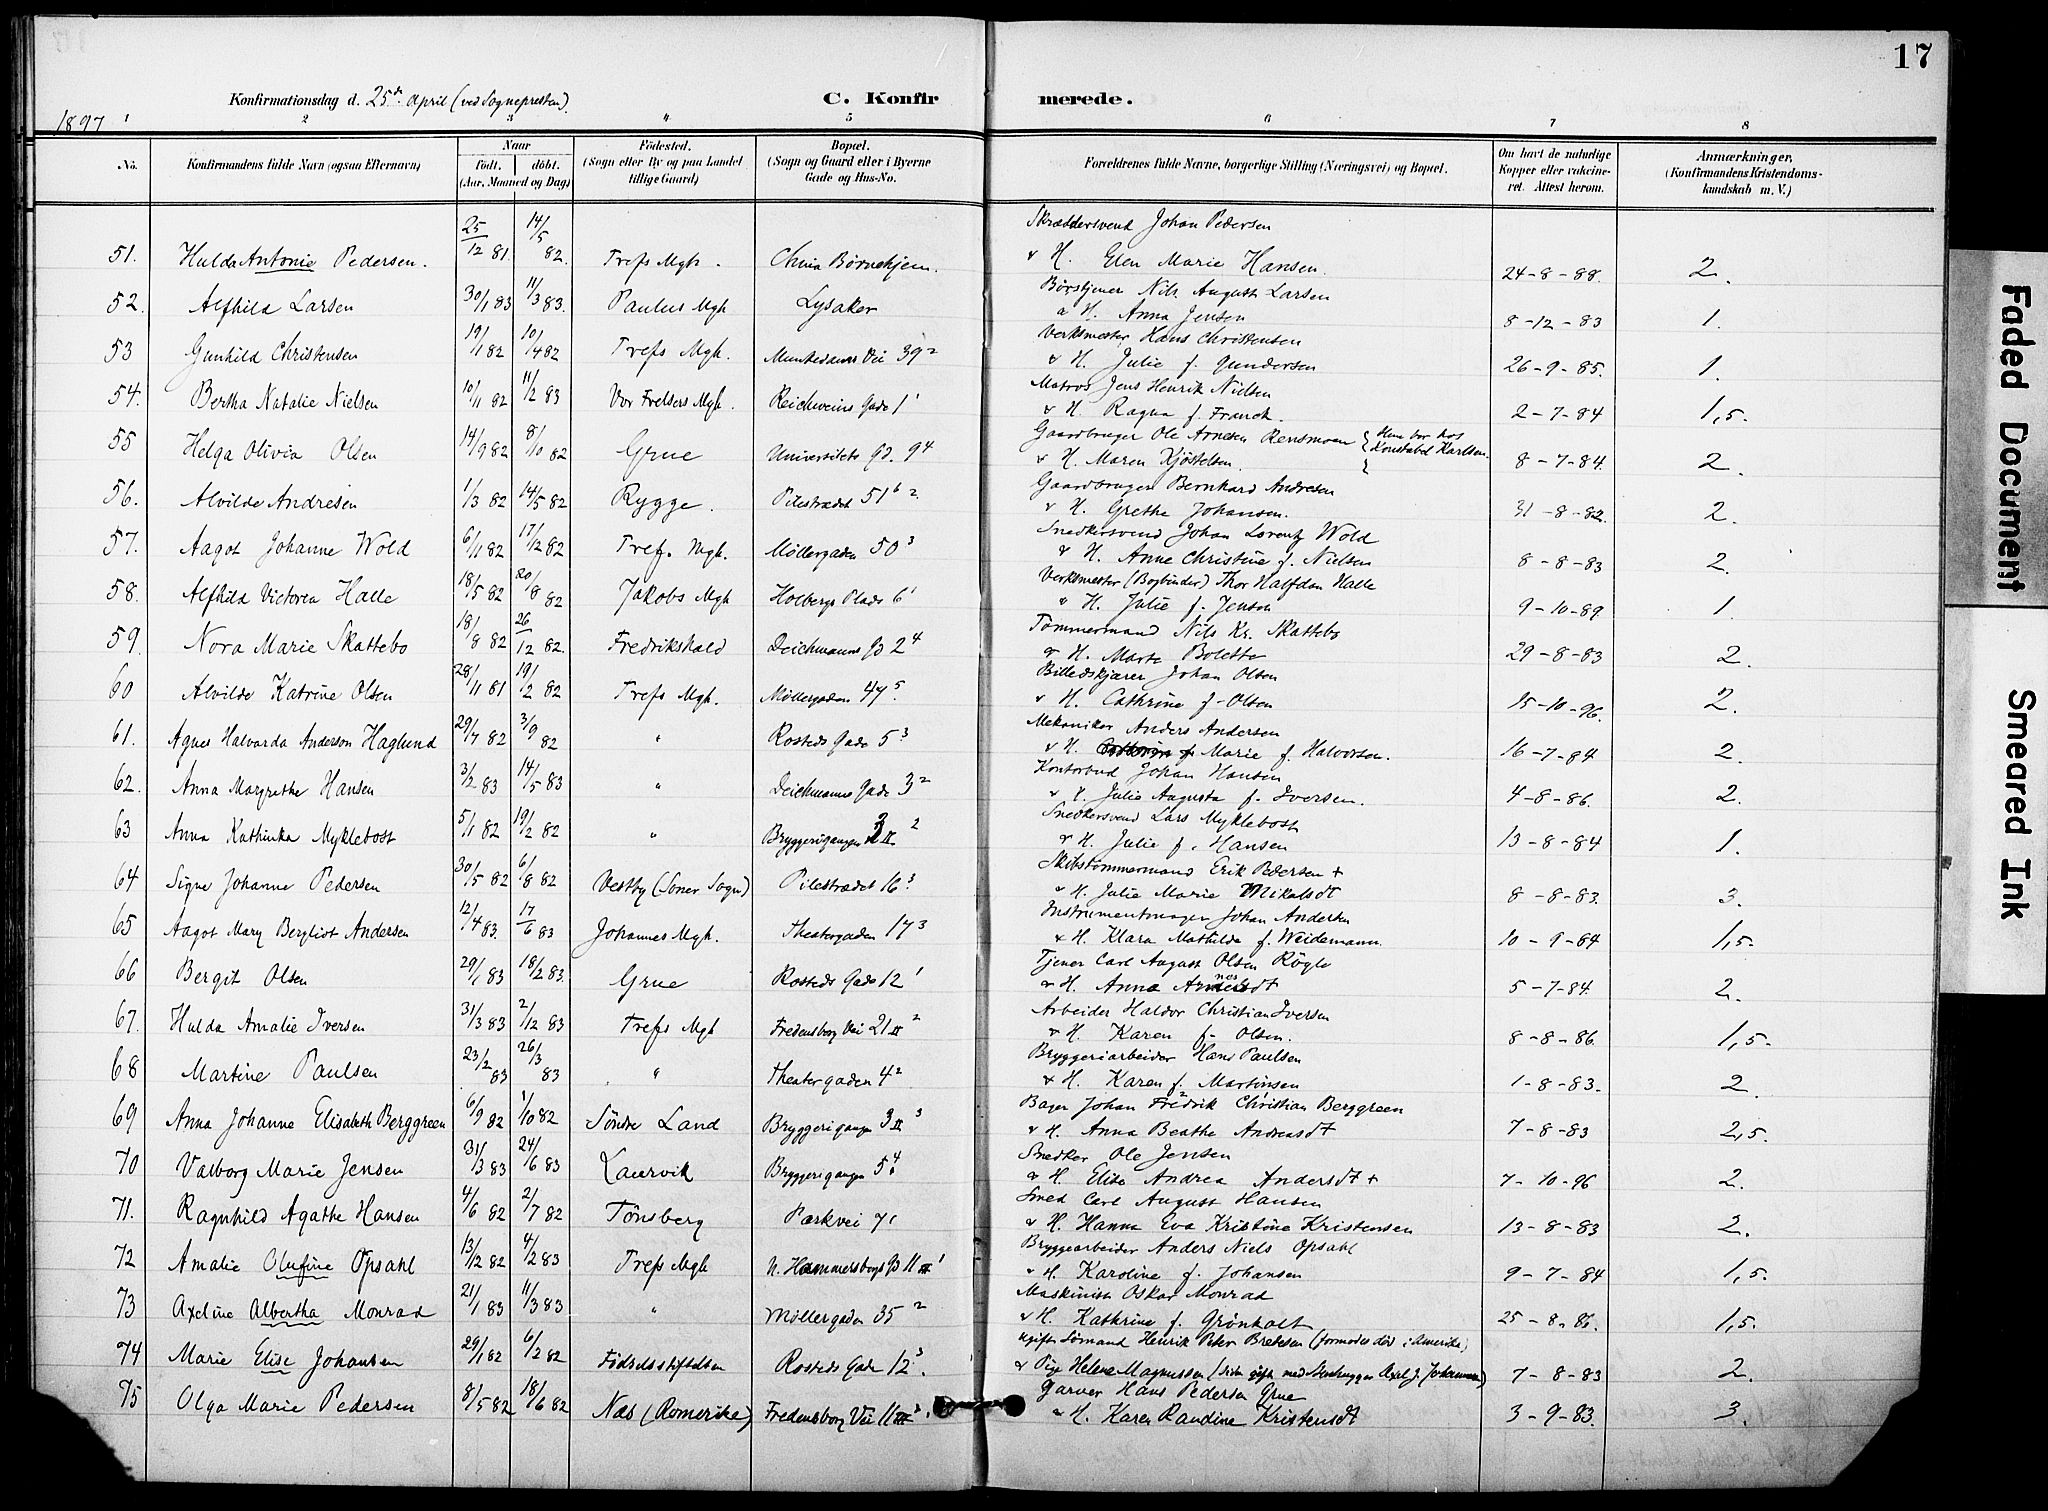 17
Konfirmationsdag d. 25de April (ved Sognepresten). C. Konfirmerede.
1897
1 2 3 4 5 6 7 8
No. Konfirmandens fulde Navn (ogsaa Efternavn) Naar født. døbt. (Aar, Maaned og Dag) Fødested. (Sogn eller By og paa Landet tillige Gaard) Bopæl. (Sogn og Gaard eller i Byerne Gade og Hus-No. Forældrenes fulde Navne, borgerlige Stilling (Næringsvei) og Bopæl. Om havt de naturlige Kopper eller vaccineret. Attest herom. Anmærkninger, (Konfirmandens Kristendomskundskab m. V.)
Skræddersvend Johan Pedersen
51. Hulda Antonie Pedersen. 25/12 81 14/5 82. Trefs Mgh. Børnehjem. & H. Elen Marie Hansen. 24-8-88. 2.
Nils August Larsen
52. Alfhild Larsen 30/1 83 11/3 83. Paulus Mgh Lysaker & H. Anna Jensen 8-12-83 1.
Verksmester Hans Christensen
53 Gunhild Christensen 19/1 82 10/4 82 Trefs Mgh. Munkedams Vei 39 2 & H. Julie f. Gundersen 26-9-85. 1.
Matros Jens Henrik Nielsen
54. Bertha Natalie Nielsen 10/11 82 11/2 83 Vor Frelsers Mgh. Reichweins Gade 1 1 & H. Ragna f. Franck. 2-7-84 1,5.
Gaardbruger Ole Arnesen Rensmoen { Hun bor hos
55 Helga Olivia Olsen 14/9 82 8/10 82 Grue Universitets Gd. 9 4 & H. Maren Kjøstelsen. { Konstabel Karlsen. 8-7-84. 2.
Gaardbruger Bernhard Andresen
56. Alvilde Andresen 1/3 82 14/5 82 Rygge. Pilestrædet 51 b 2 & H. Grethe Johansen. 31-8-82. 2.
Snedkersvend Johan Lorentz Wold
57. Aagot Johanne Wold 6/11 82 17/2 82 Trefs. Mgh. Møllergaden 50 3 & H. Anne Christine f. Nielsen 8-8-83 2.
Verksmester (Bogbinder) Thor Halfdan Halle
58. Alfhild Victoria Halle 18/5 82 20/8 82 Jakobs Mgh Holbergs Plads 6 1 " H. Julie f. Jenson 9-10-89. 1.
Tømmermand Nils Kr. Skattebo
59. Nora Marie Skattebo 18/8 82 26/12 82. Fredrikshald Deichmanns G 2 4 & H. Marte Bolette 29-8-83 2.
Billedskjærer Johan Olsen
60 Alvilde Katrine Olsen 28/11 81 19/2 82 Trefs Mgh. Møllergaden 47 5. & H. Cathrine f. Olsen 15-10-96. 2.
Mekaniker Anders Andersen
61. Agnes Halvarda Anderson Haglund 29/7 82 3/9 82 " Rosteds Gade 5 3 & H. Marie f. Halvorsen. 16-7-84 2.
Kontorbud Johan Hansen
62. Anna Margrethe Hansen 3/2 83 14/5 83 " Deichmanns Gade 3 2 & H. Julie Augusta f. Iversen. 4-8-86. 2.
Snedkersvend Lars Myklebost
63 Anna Kathinka Myklebost 5/1 82 19/2 82 " Bryggerigangen 3 II 2 & H. Julie f. Hansen 13-8-84 1.
Skibstømmermand Erik Pedersen +
64 Signe Johanne Pedersen 30/5 82 6/8 82 Vestby (Soner Sogn) Pilestrædet 16 3 & H. Julie Marie Mikalsdt 8-8-83. 3.
Instrumentmager Johan Andersen
65 Aagot Mary Bergliot Andersen 12/4 83. 17/6 83 Johannes Mgh. Theatergaden 17 3 & H. Klara Mathilde f. Weidemann. 10-9-84 1,5.
Tjener Carl August Olsen Røgle
66 Bergit Olsen 29/1 83 18/2 83. Grue Rosteds Gade 12 1 & H. Anna 5-7-84. 2.
Arbeider Haldor Christian Iversen
67. Hulda Amalie Iversen 31/3 83 2/12 83 Trefs Mgh Fredensborg Vei 21 II 2 & H. Karen f. Olsen. 8-8-86. 1,5.
Bryggeriarbeider Hans Paulsen
68 Martine Paulsen 23/2 83 26/3 83 " Theatergaden 4 2 & H. Karen f. Martinsen 1-8-83. 2
Bager Johan Fredrik Christian Berggreen
69 Anna Johanne Elisabeth Berggreen 6/9 82 1/10 82 Søndre Land Bryggerigangen 3 II 3 & H. Anna Beathe Andreasdt 7-8-83 2,5.
Snedker Ole Jensen
70 Valborg Marie Jensen 31/3 83 24/6 83 Laurvik Bryggerigangen 5 4 & H. Elise Andrea Andersdt + 7-10-96 2.
Smed Carl August Hansen
71. Ragnhild Agathe Hansen 4/6 82 2/7 82 Tønsberg Parkvei 7 1 & H. Hanna Eva Kristine Kristensen 13-8-83 2.
Bryggearbeider Anders Niels Opsahl
72 Amalie Olufine Opsahl 13/12 82 4/2 83 Trefs Mgh N. Hammersborgs G 11 III 1 " H. Karoline f. Johansen 9-7-84 1,5.
Maskinist Oskar Monrad
73 Axeline Albertha Monrad 21/1 83 11/3 83 " Møllergaden 35 2 & H. Kathrine f. Grønholt 25-8-86. 1,5.
ugift Sømand Henrik Peter Bretesen (formodes død i Amerika)
74 Marie Elise Johansen 29/1 82 6/2 82 Fødselsstiftelsen Rosteds Gade 12 3. & Pige Helene Magnussen (siden gift med Stenhugger Axel J. Johannesen) 7-8-83 2.
Garver Hans Pedersen Grue
75 Olga Marie Pedersen 8/5 82 18/6 82 Næs (Romerike) Fredensborg Vei 11 III 2. " H. Karen Randine Kristensdt 3-9-83. 3.
Faded Document
Smeared Ink